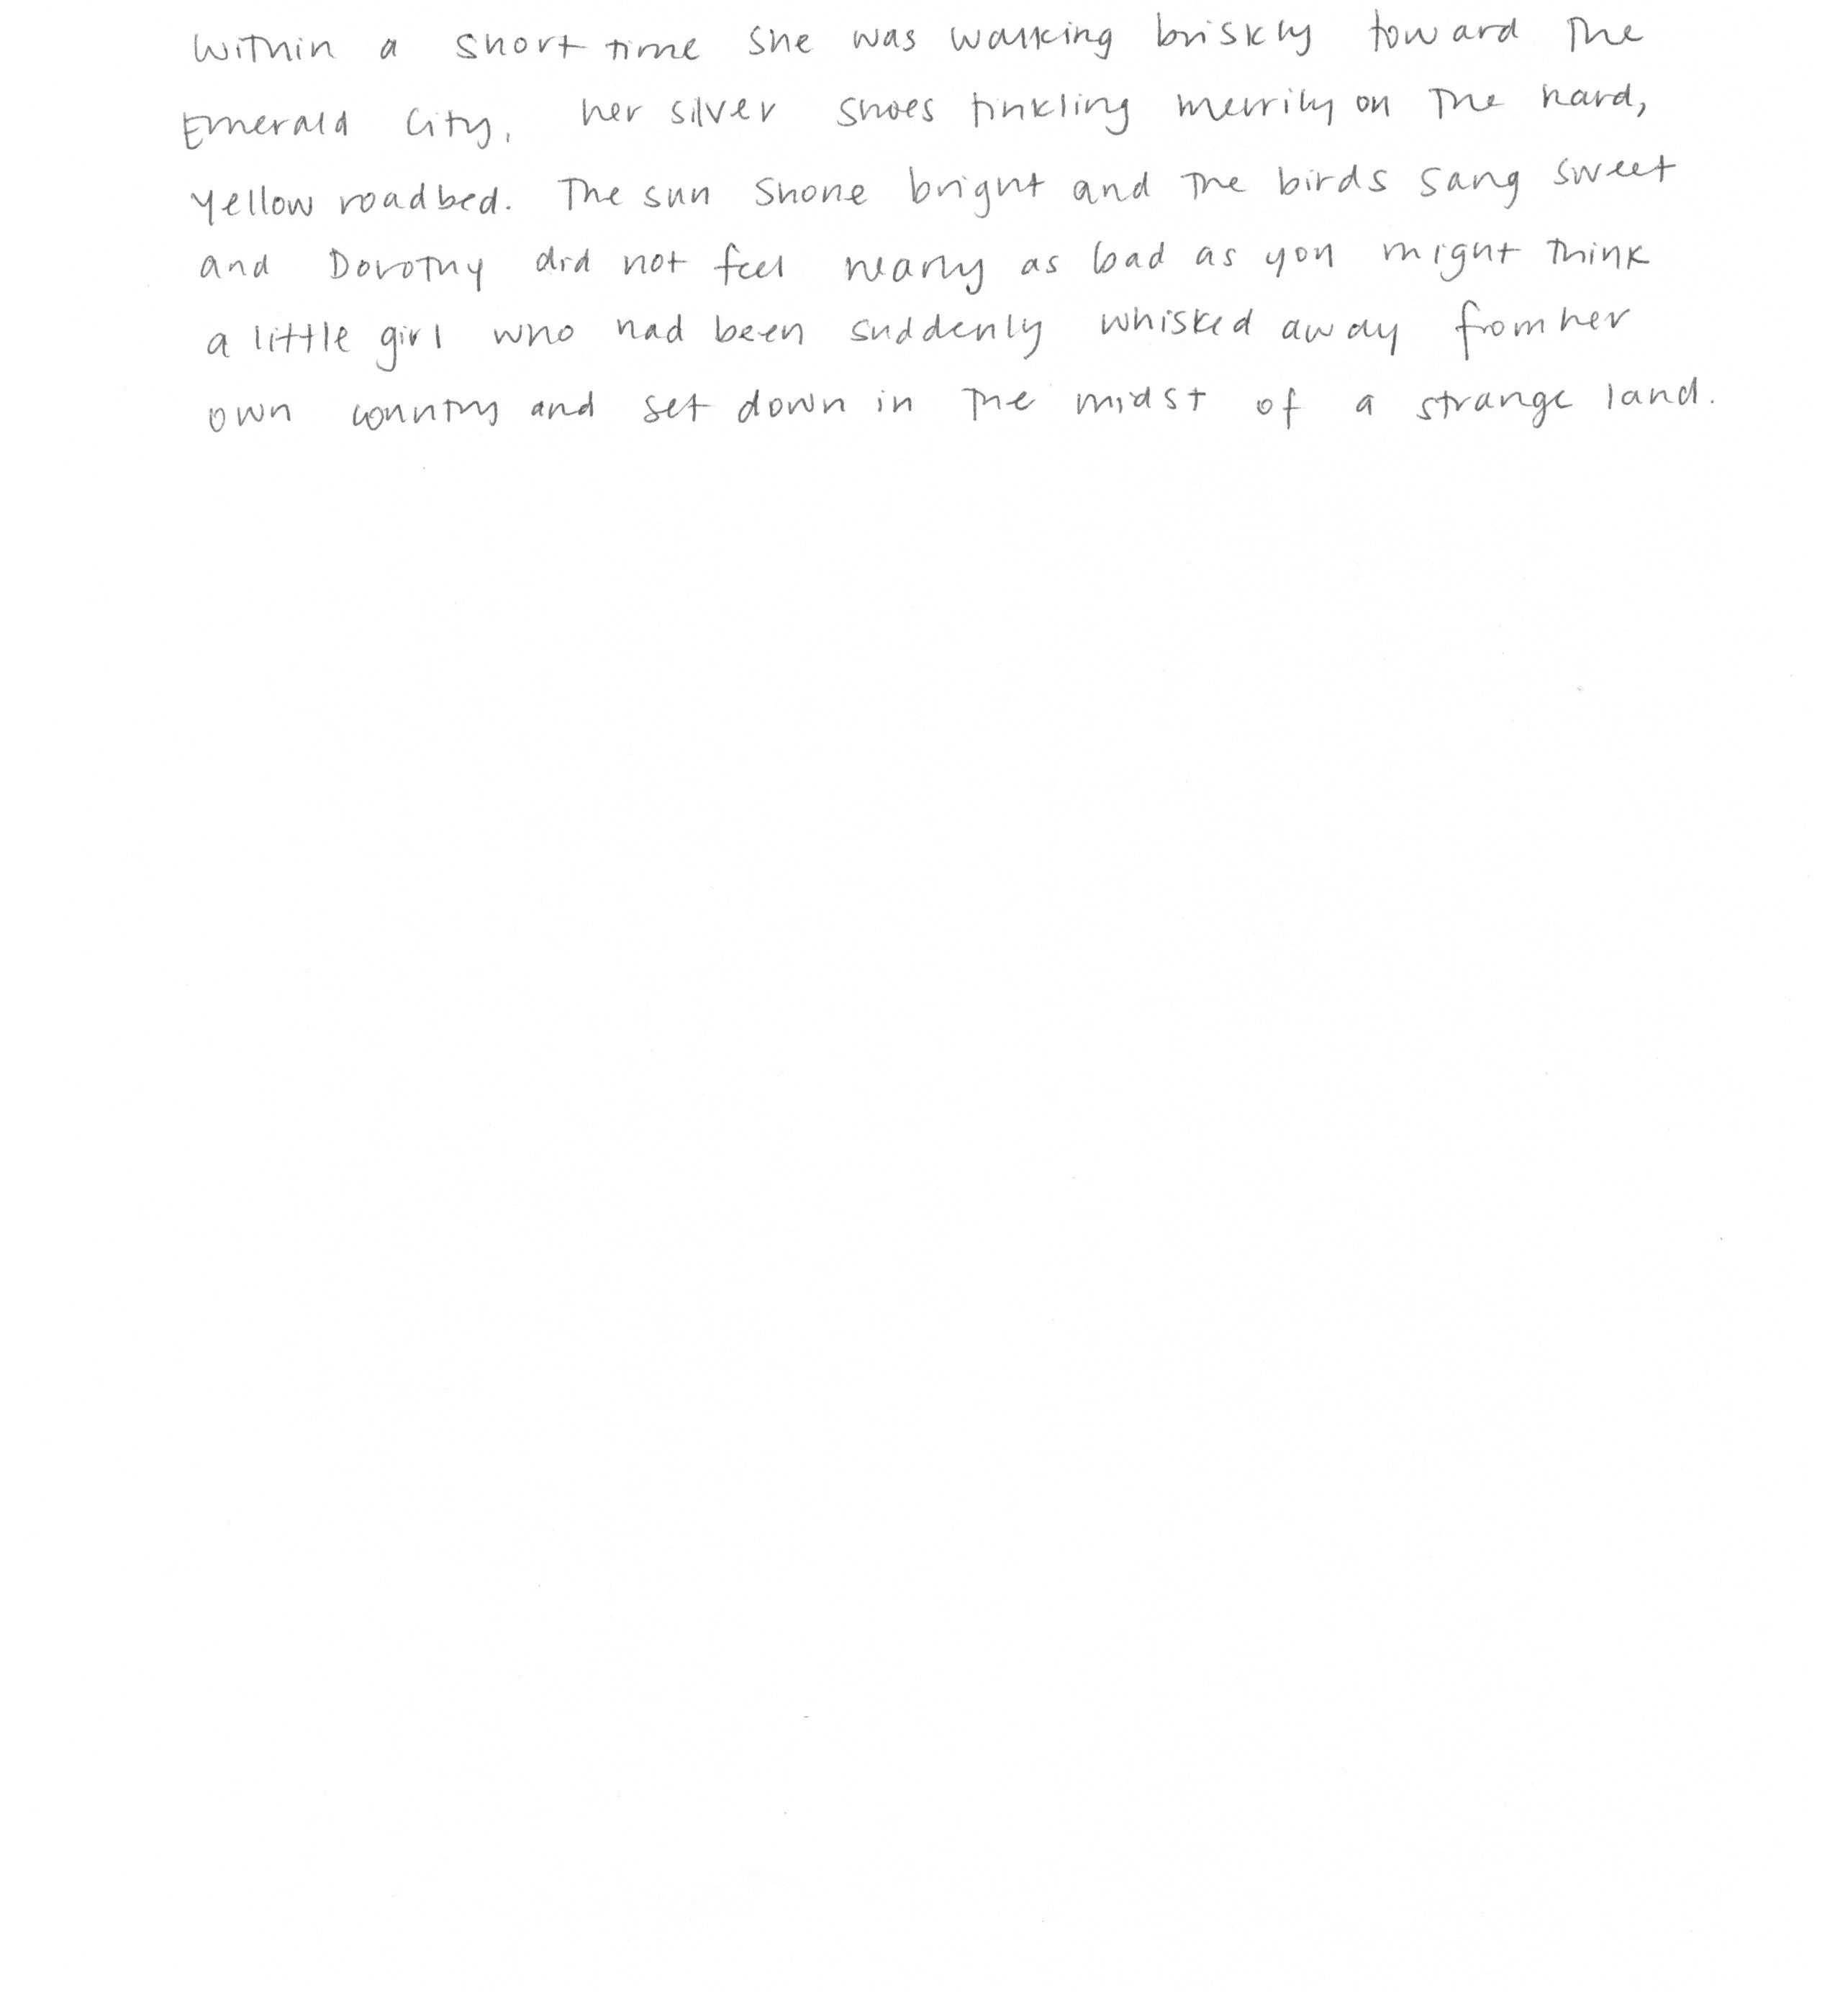 Within a short time she was walking briskly toward the
Emerald City, her silver shoes tinkling merrily on the hard,
yellow roadbed. The sun shone bright and the birds sang sweet
and Dorothy did not feel nearly as bad as you might think
a little girl who had been suddenly whisked away from her
own country and set down in the midst of a strange land.